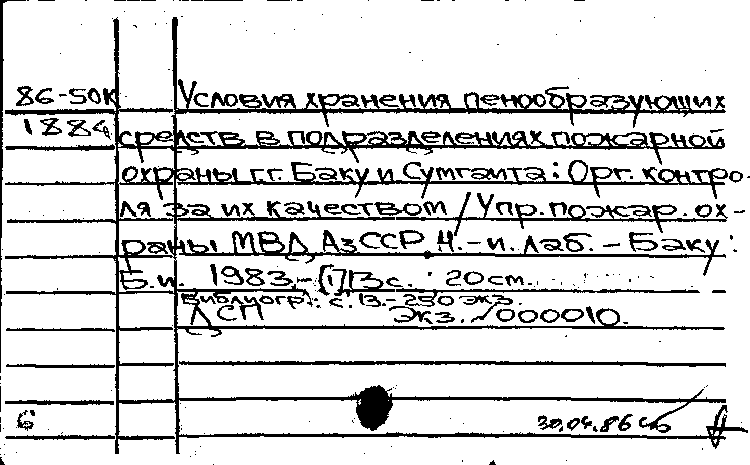 86-50К Условия хранения пенообразующих
1884 средств в подразделениях пожарной
охраны г.г. Баку и Сумгаита: Орг. контро-
ля за их качеством / Упр. пожар. ох-
раны МВД АзССР, Н.-и. лаб. - Баку:
Б.и. 1983. - [1], 13 с.; 20 см.
Библиогр.: с. 13. - 250 экз.
ДСП Экз. №000010.
6 30.04.86